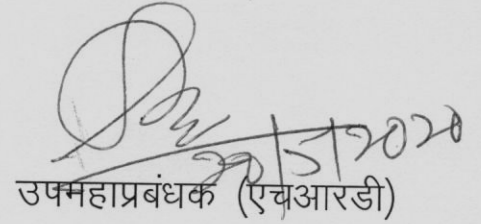 20/5/2020
उपमहाप्रबंधक (एचआरडी)